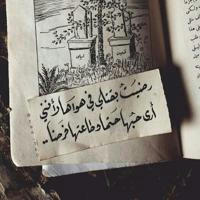 رضيتُ بقتلي في هواها لأنني
أرى حبّها حتمًا وطاعتها فرضا..